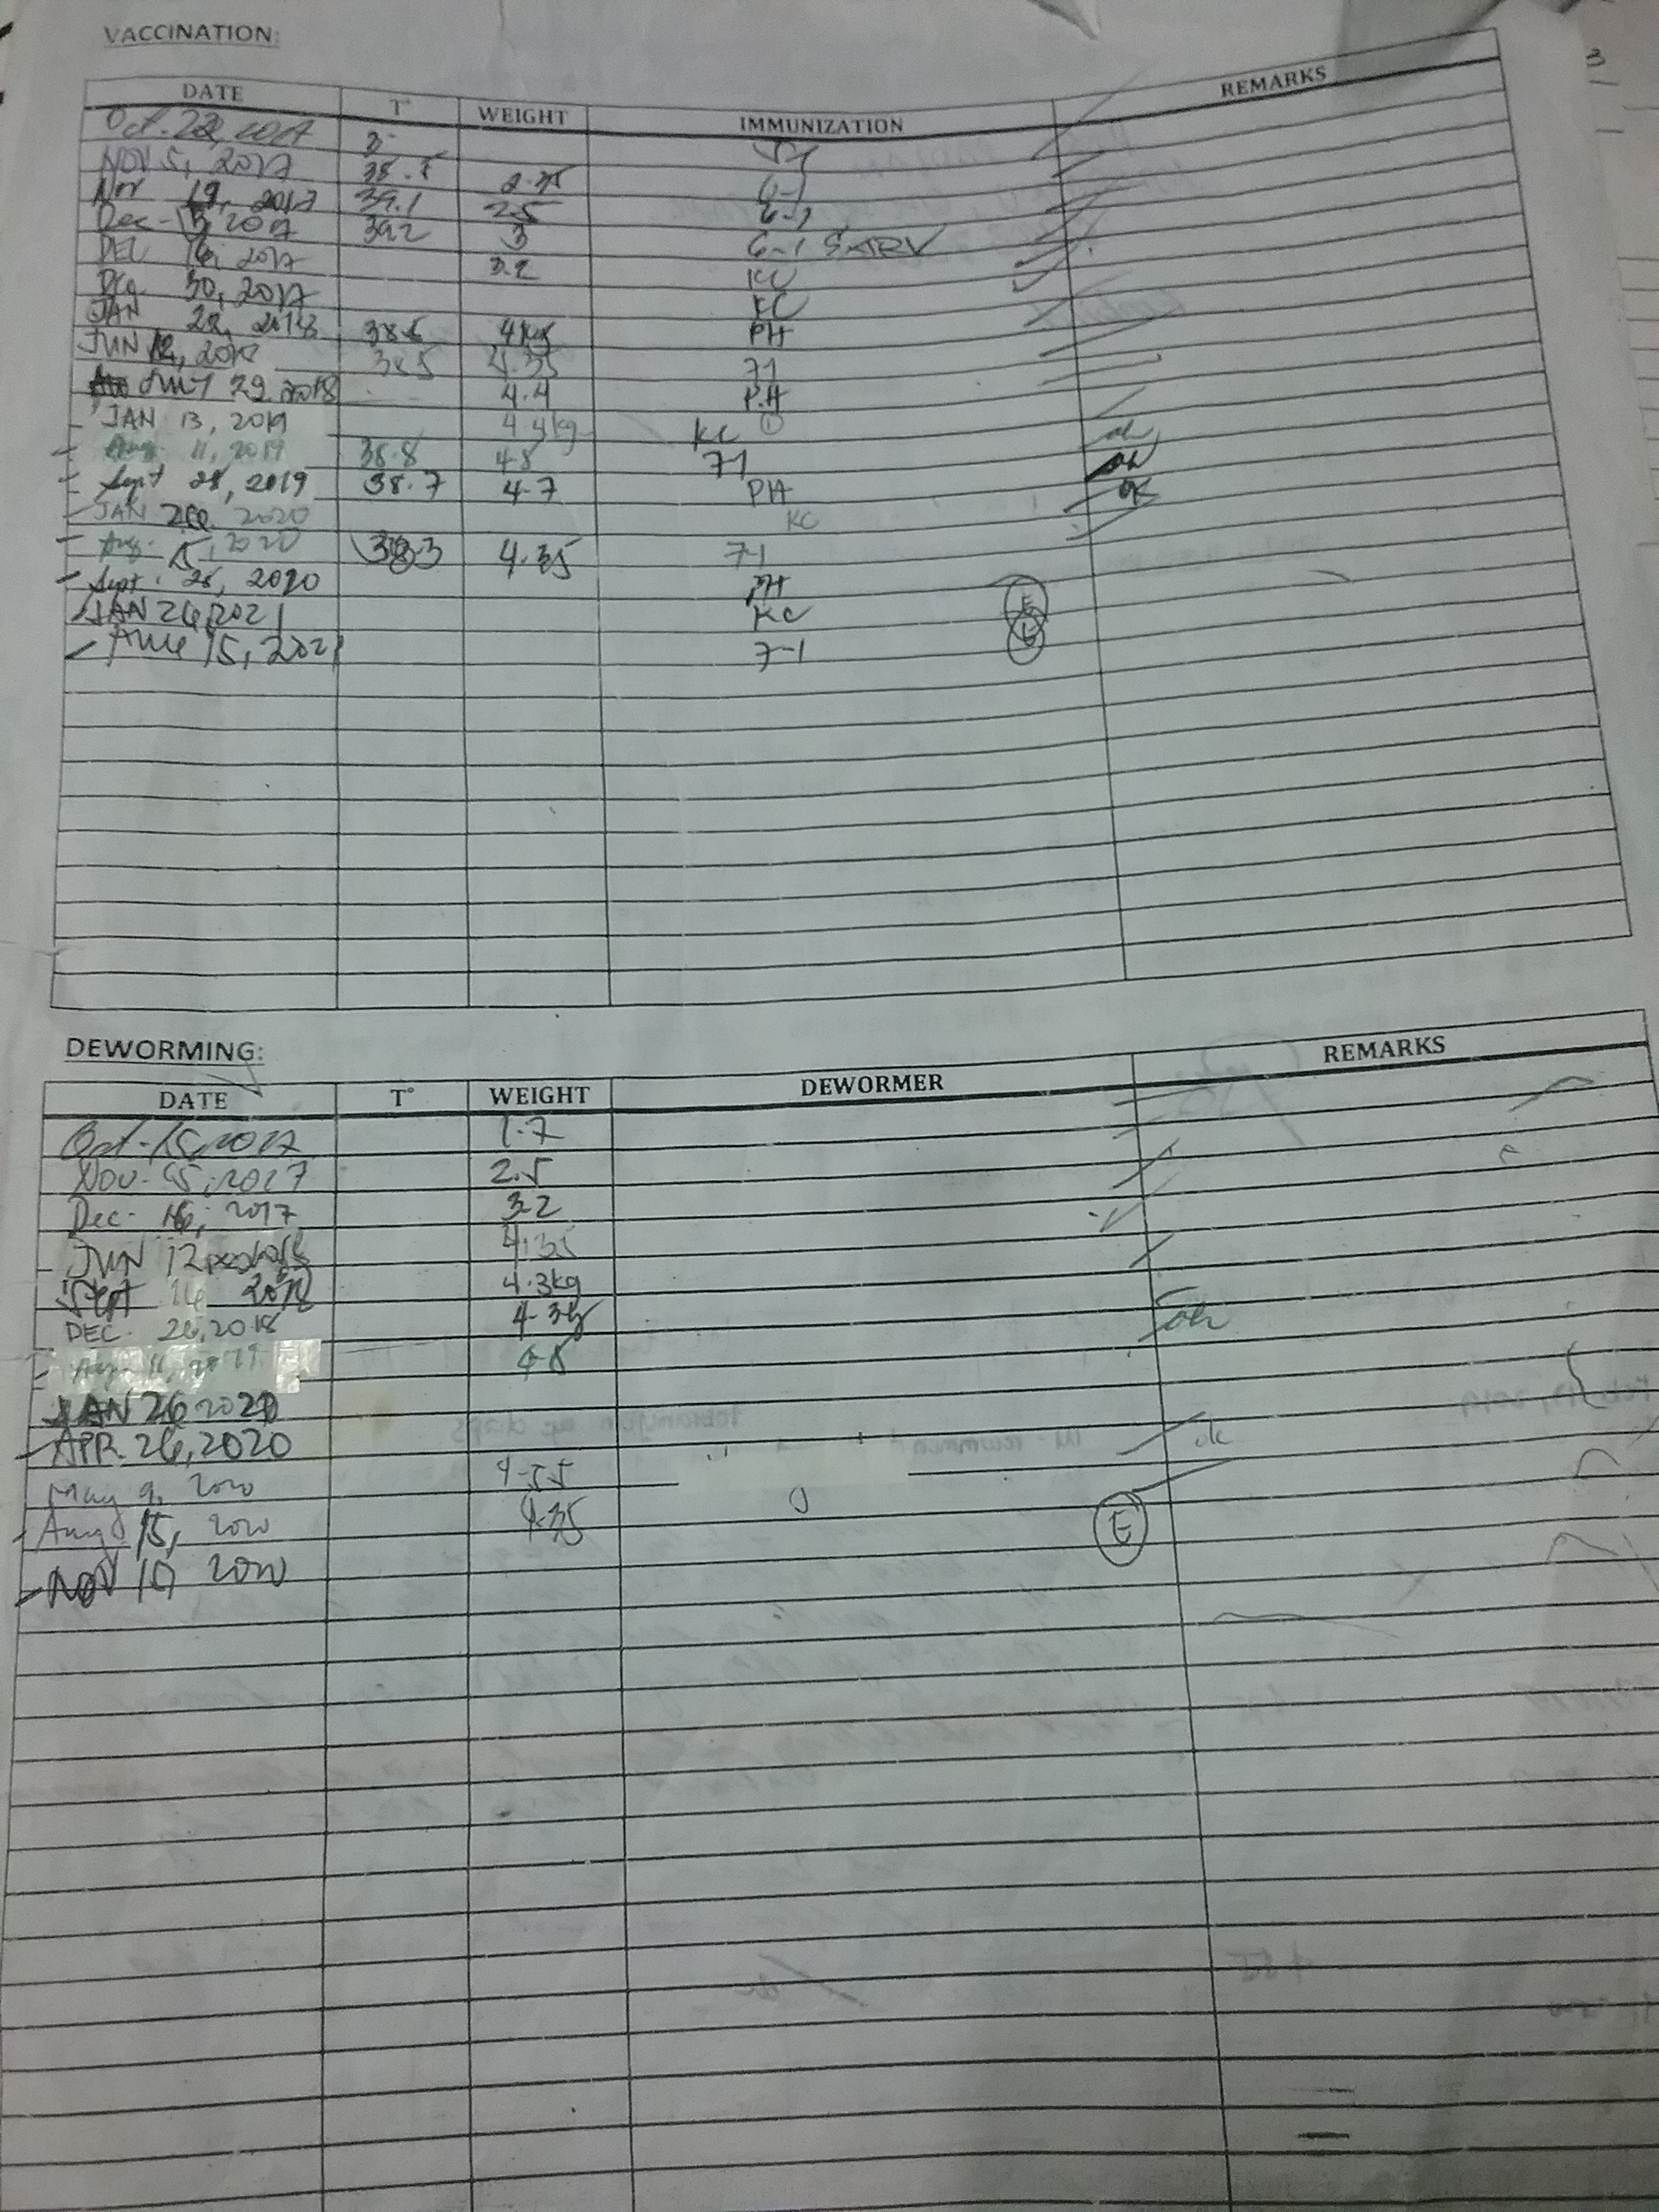 VACCINATION:
DATE T° WEIGHT IMMUNIZATION REMARKS
Oct. 22, 2017
NOV 5, 2017 38.5 2.35 6-1
Nov 19, 2017 39.1 2.5 6-1
Dec - 3, 2017 39.2 3 6-1 & ARV
DEC 16, 2017 3.2 KC
Dec 30, 2017 KC
JAN 28, 2018 38.5 4kg PH
JUN 12, 2018 38.5 4.35 71
29 2018 4.4 P.H
JAN 13, 2019 4.4kg KC 1
Aug. 11, 2019 38.8 4.8 71 ok
Sept 28, 2019 38.7 4.7 PH ok
JAN 2020 KC ok
Aug. 15, 2020 38.3 4.35 7-1
Sept. 26, 2020 PH
JAN 26, 2021 KC E
15, 2021 7-1
DEWORMING:
DATE T° WEIGHT DEWORMER REMARKS
Oct - 15, 2017 1.7
Nov - 5, 2017 2.5
Dec - 16, 2017 3.2
JUN 12 4.35
Sept 16 2018 4.3kg
DEC. 26, 2018 4.35
Aug. 11, 2019 4.8 ok
JAN 26 2020
APR. 26, 2020
May 9, 2020 4.55 ok
Aug 15, 2020 4.35
NOV 2020 E